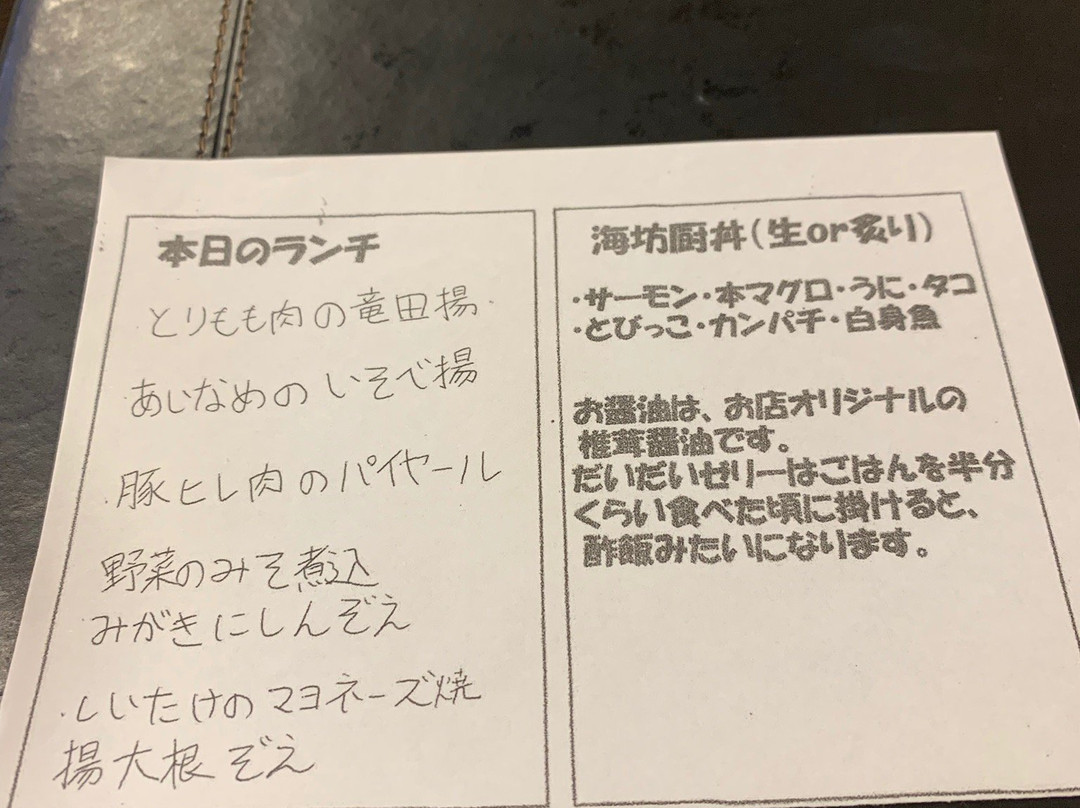 本日のランチ
・とりもも肉の竜田揚
・あいなめのいそべ揚
・豚ヒレ肉のパイヤール
・野菜のみそ煮込
みがきにしんぞえ
・しいたけのマヨネーズ焼
揚大根ぞえ
海坊厨丼(生or炙り)
・サーモン・本マグロ・うに・タコ
・とびっこ・カンパチ・白身魚
お醤油は、お店オリジナルの
椎茸醤油です。
だいだいゼリーはごはんを半分
くらい食べた頃に掛けると、
酢飯みたいになります。